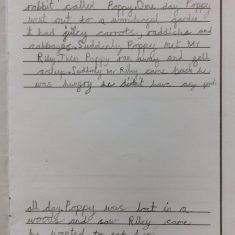 rabbit called Poppy. One day Poppy
went out to a wonderful garden
it had juicy carrots, raddichs and
cabbages. Suddenly Poppy met Mr
Riley. Then Poppy ran away and
Suddnly Mr. Riley came back he
was hungry he didnt have any
all day. Poppy was lost in a
woods and saw Riley came
he wanted to eat him